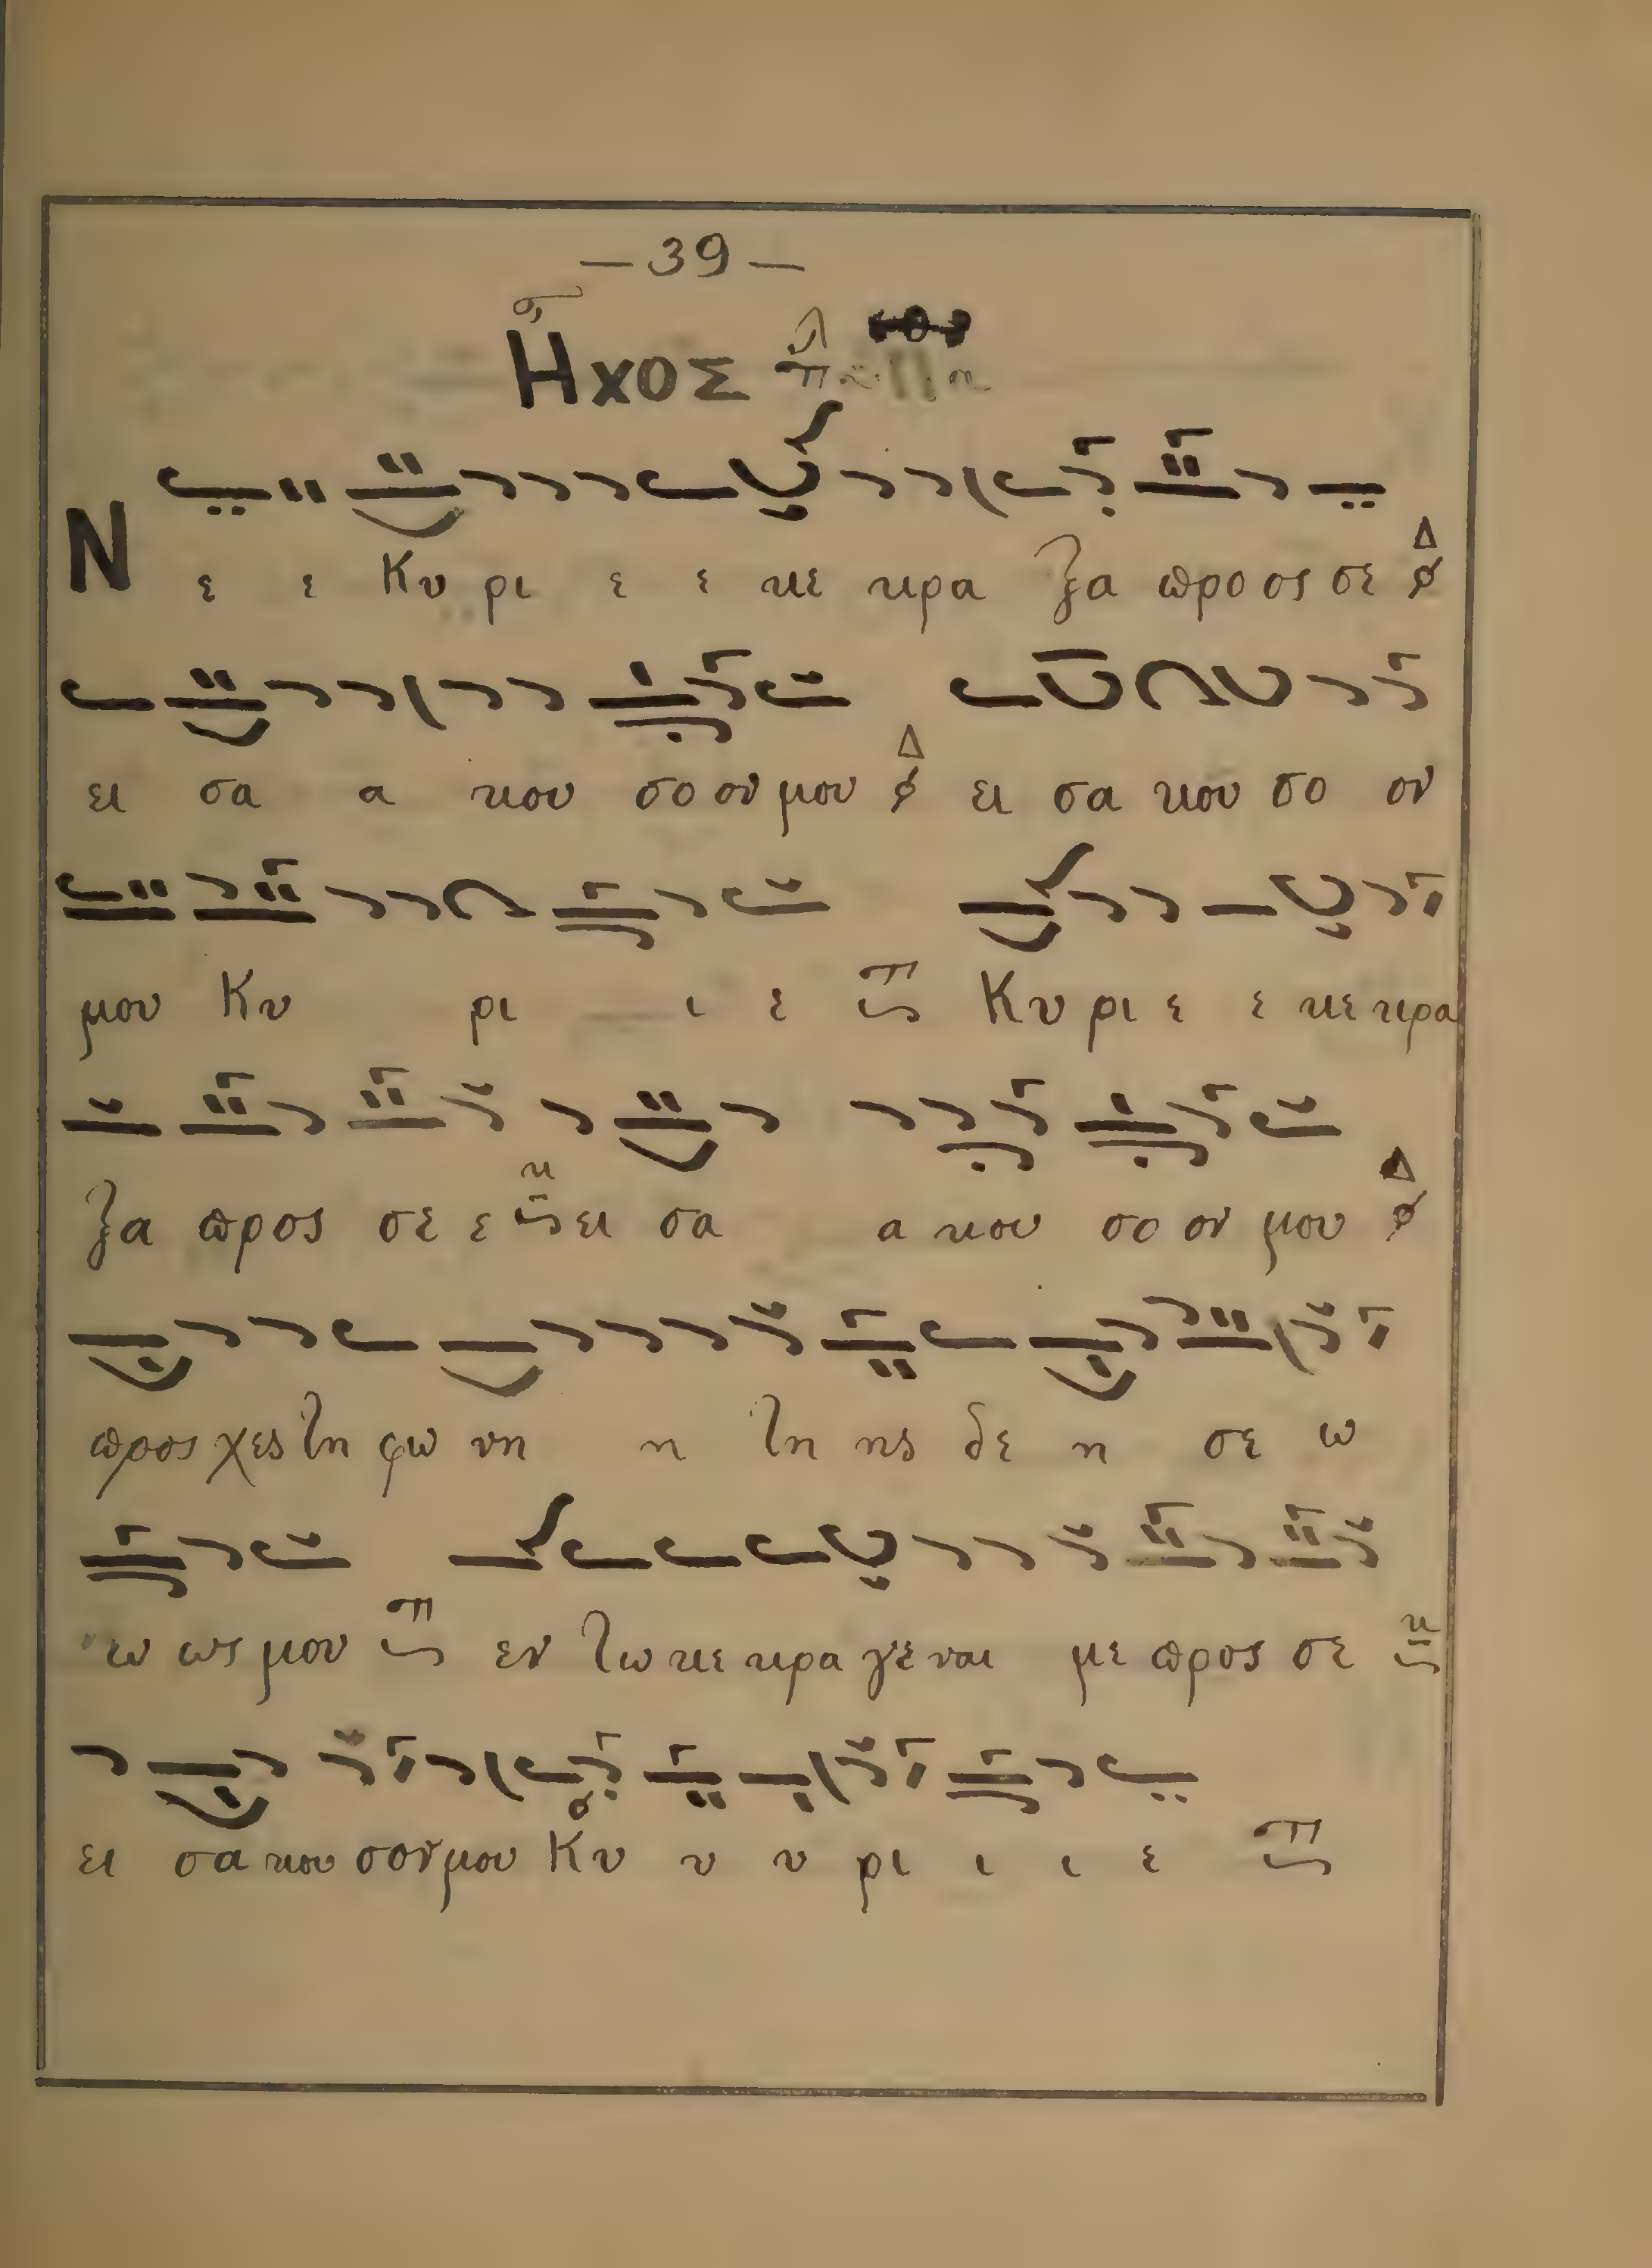 —39—
Ηχος
Ν ε ε Κυ ρι ε ε κε κρα ξα προ ος σε Δ
ει σα α κου σο ον μου Δ ει σα κου σο ον
μου Κυ ρι ι ε π Κυ ρι ε ε κε κρα
ξα προς σε ε κ ει σα α κου σο ον μου Δ
προσ χες τη φω νη η τη ης δε η σε ω
ω ως μου π εν τω κε κρα γε ναι με προς σε κ
ει σα κου σον μου Κυ υ υ ρι ι ι ε π